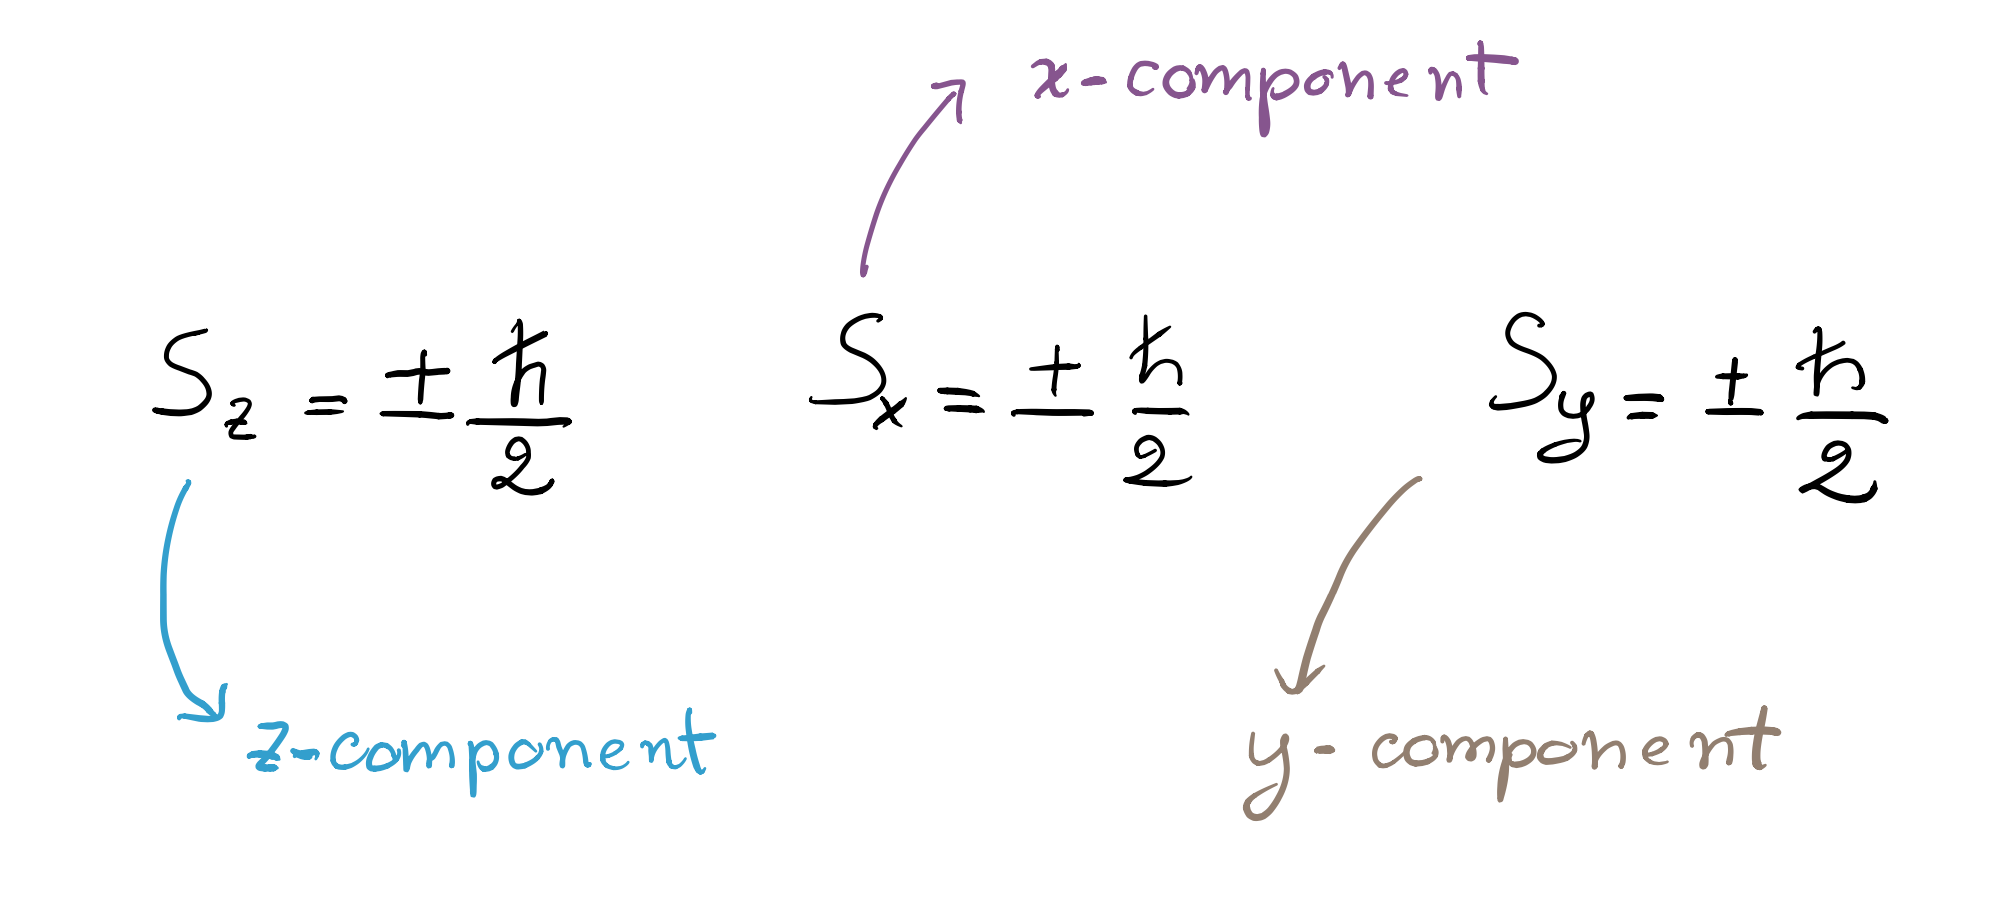 x-component
S_z = ± ħ/2
S_x = ± ħ/2
S_y = ± ħ/2
z-component
y-component